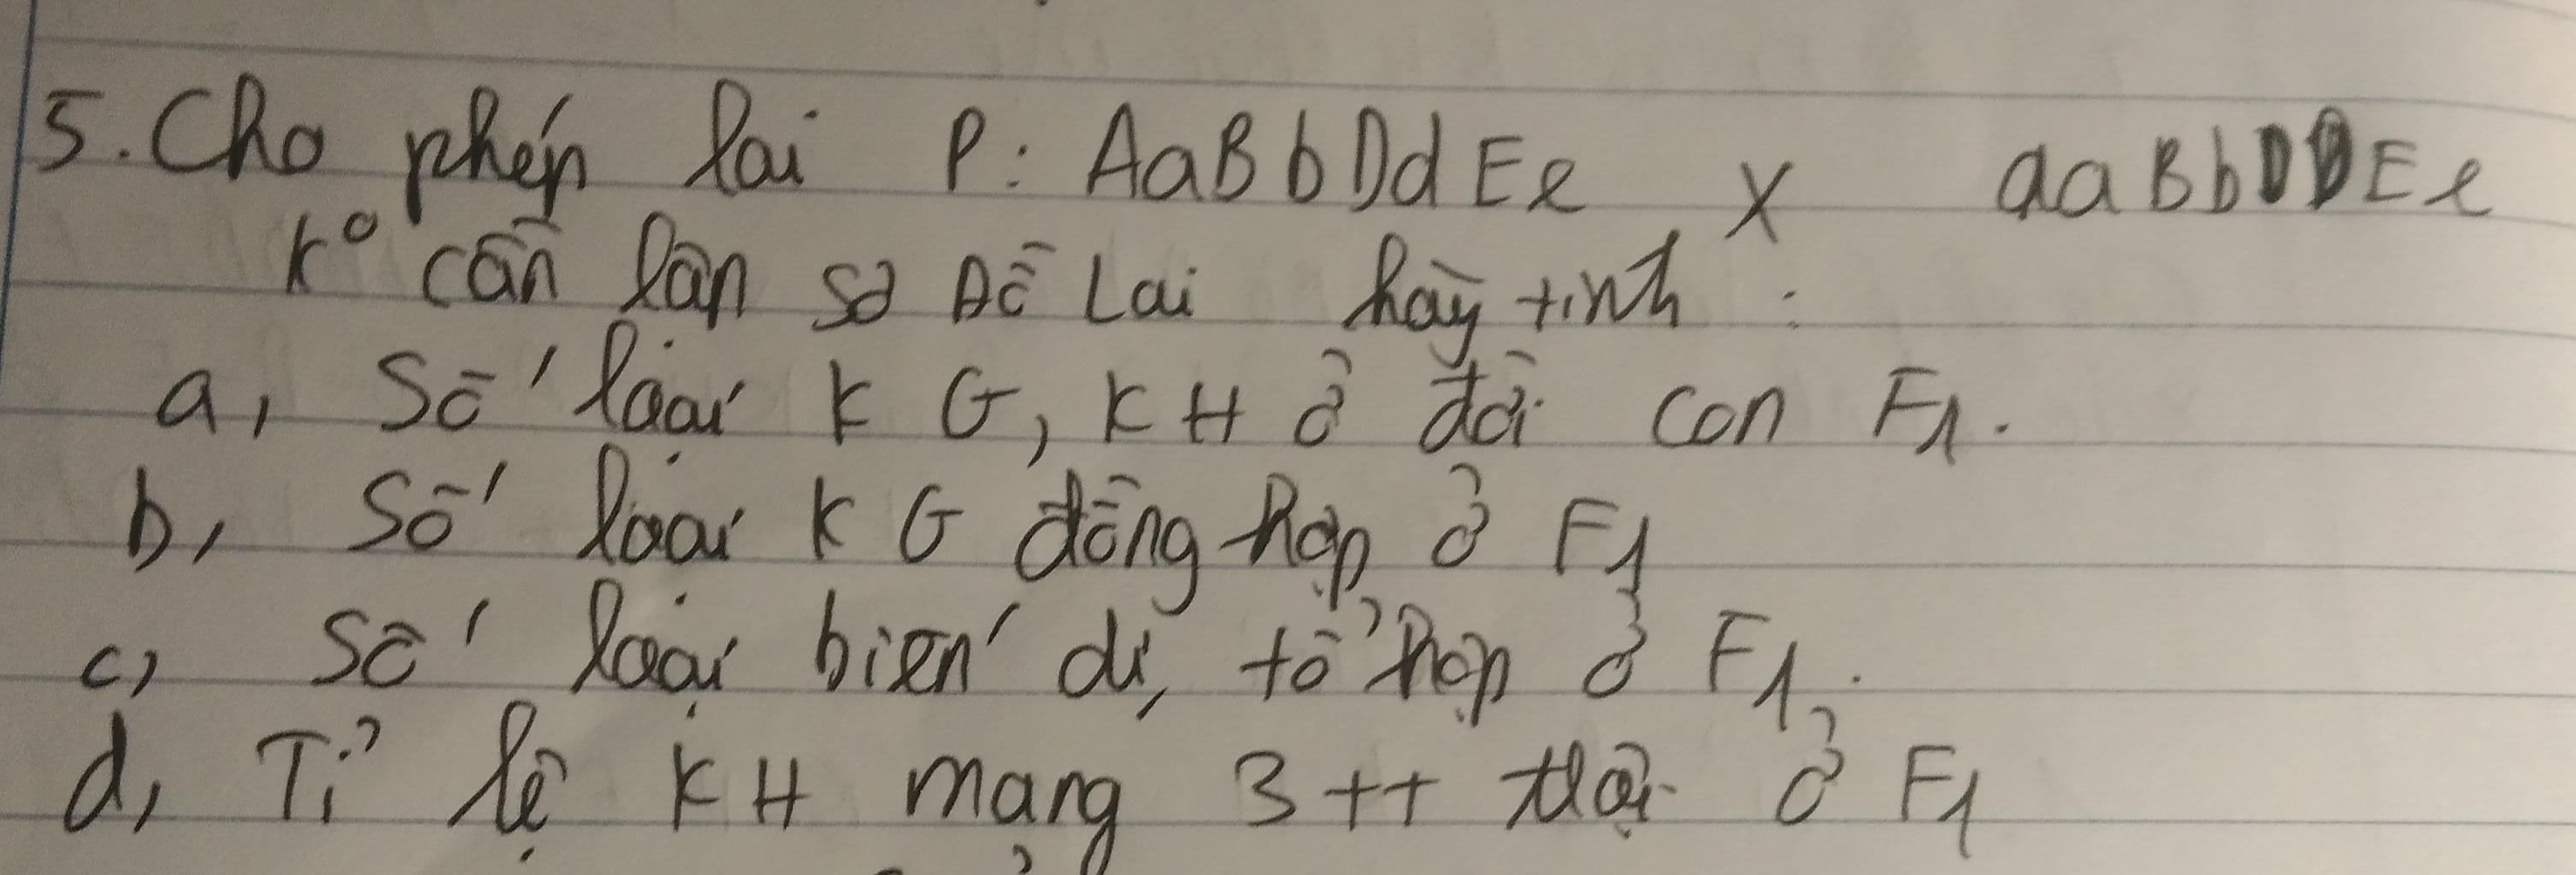 5. Cho phép lai P: AaBbDdEe x aaBbDDEe
K° cần lập sơ Đồ Lai hãy tính :
a, Số loại KG, KH ở đời con F1.
b, Số loại KG đồng hợp ở F1
c, Số loại biến dị tổ hợp ở F1.
d, Tỉ lệ KH mang 3 tt trội ở F1